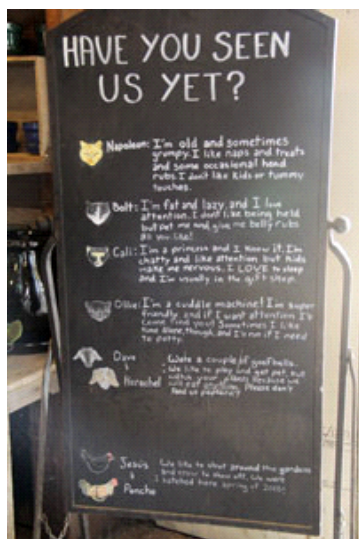 HAVE YOU SEEN
US YET?
Napoleon: I'm old and sometimes
grumpy. I like naps and treats
and some occasional head
rubs. I don't like kids or tummy
touches.
Bolt: I'm fat and lazy, and I love
attention. I don't like being held
but pet me and give me belly rubs
all you like!
Cali: I'm a princess and I know it. I'm
chatty and like attention but kids
make me nervous. I LOVE to sleep
and I'm usually in the gift shop.
Ollie: I'm a cuddle machine! I'm super
friendly, and if I want attention I'll
come find you! Sometimes I like
time alone, though, and I'll run if I need
to potty.
Dave
&
Herschel
We're a couple of goofballs.
We like to play and get pet, but
watch your because we
will eat anything. Please don't
feed us
Jesús
&
Poncho
We like to strut around the gardens
and crow to show off. We were
hatched here spring of